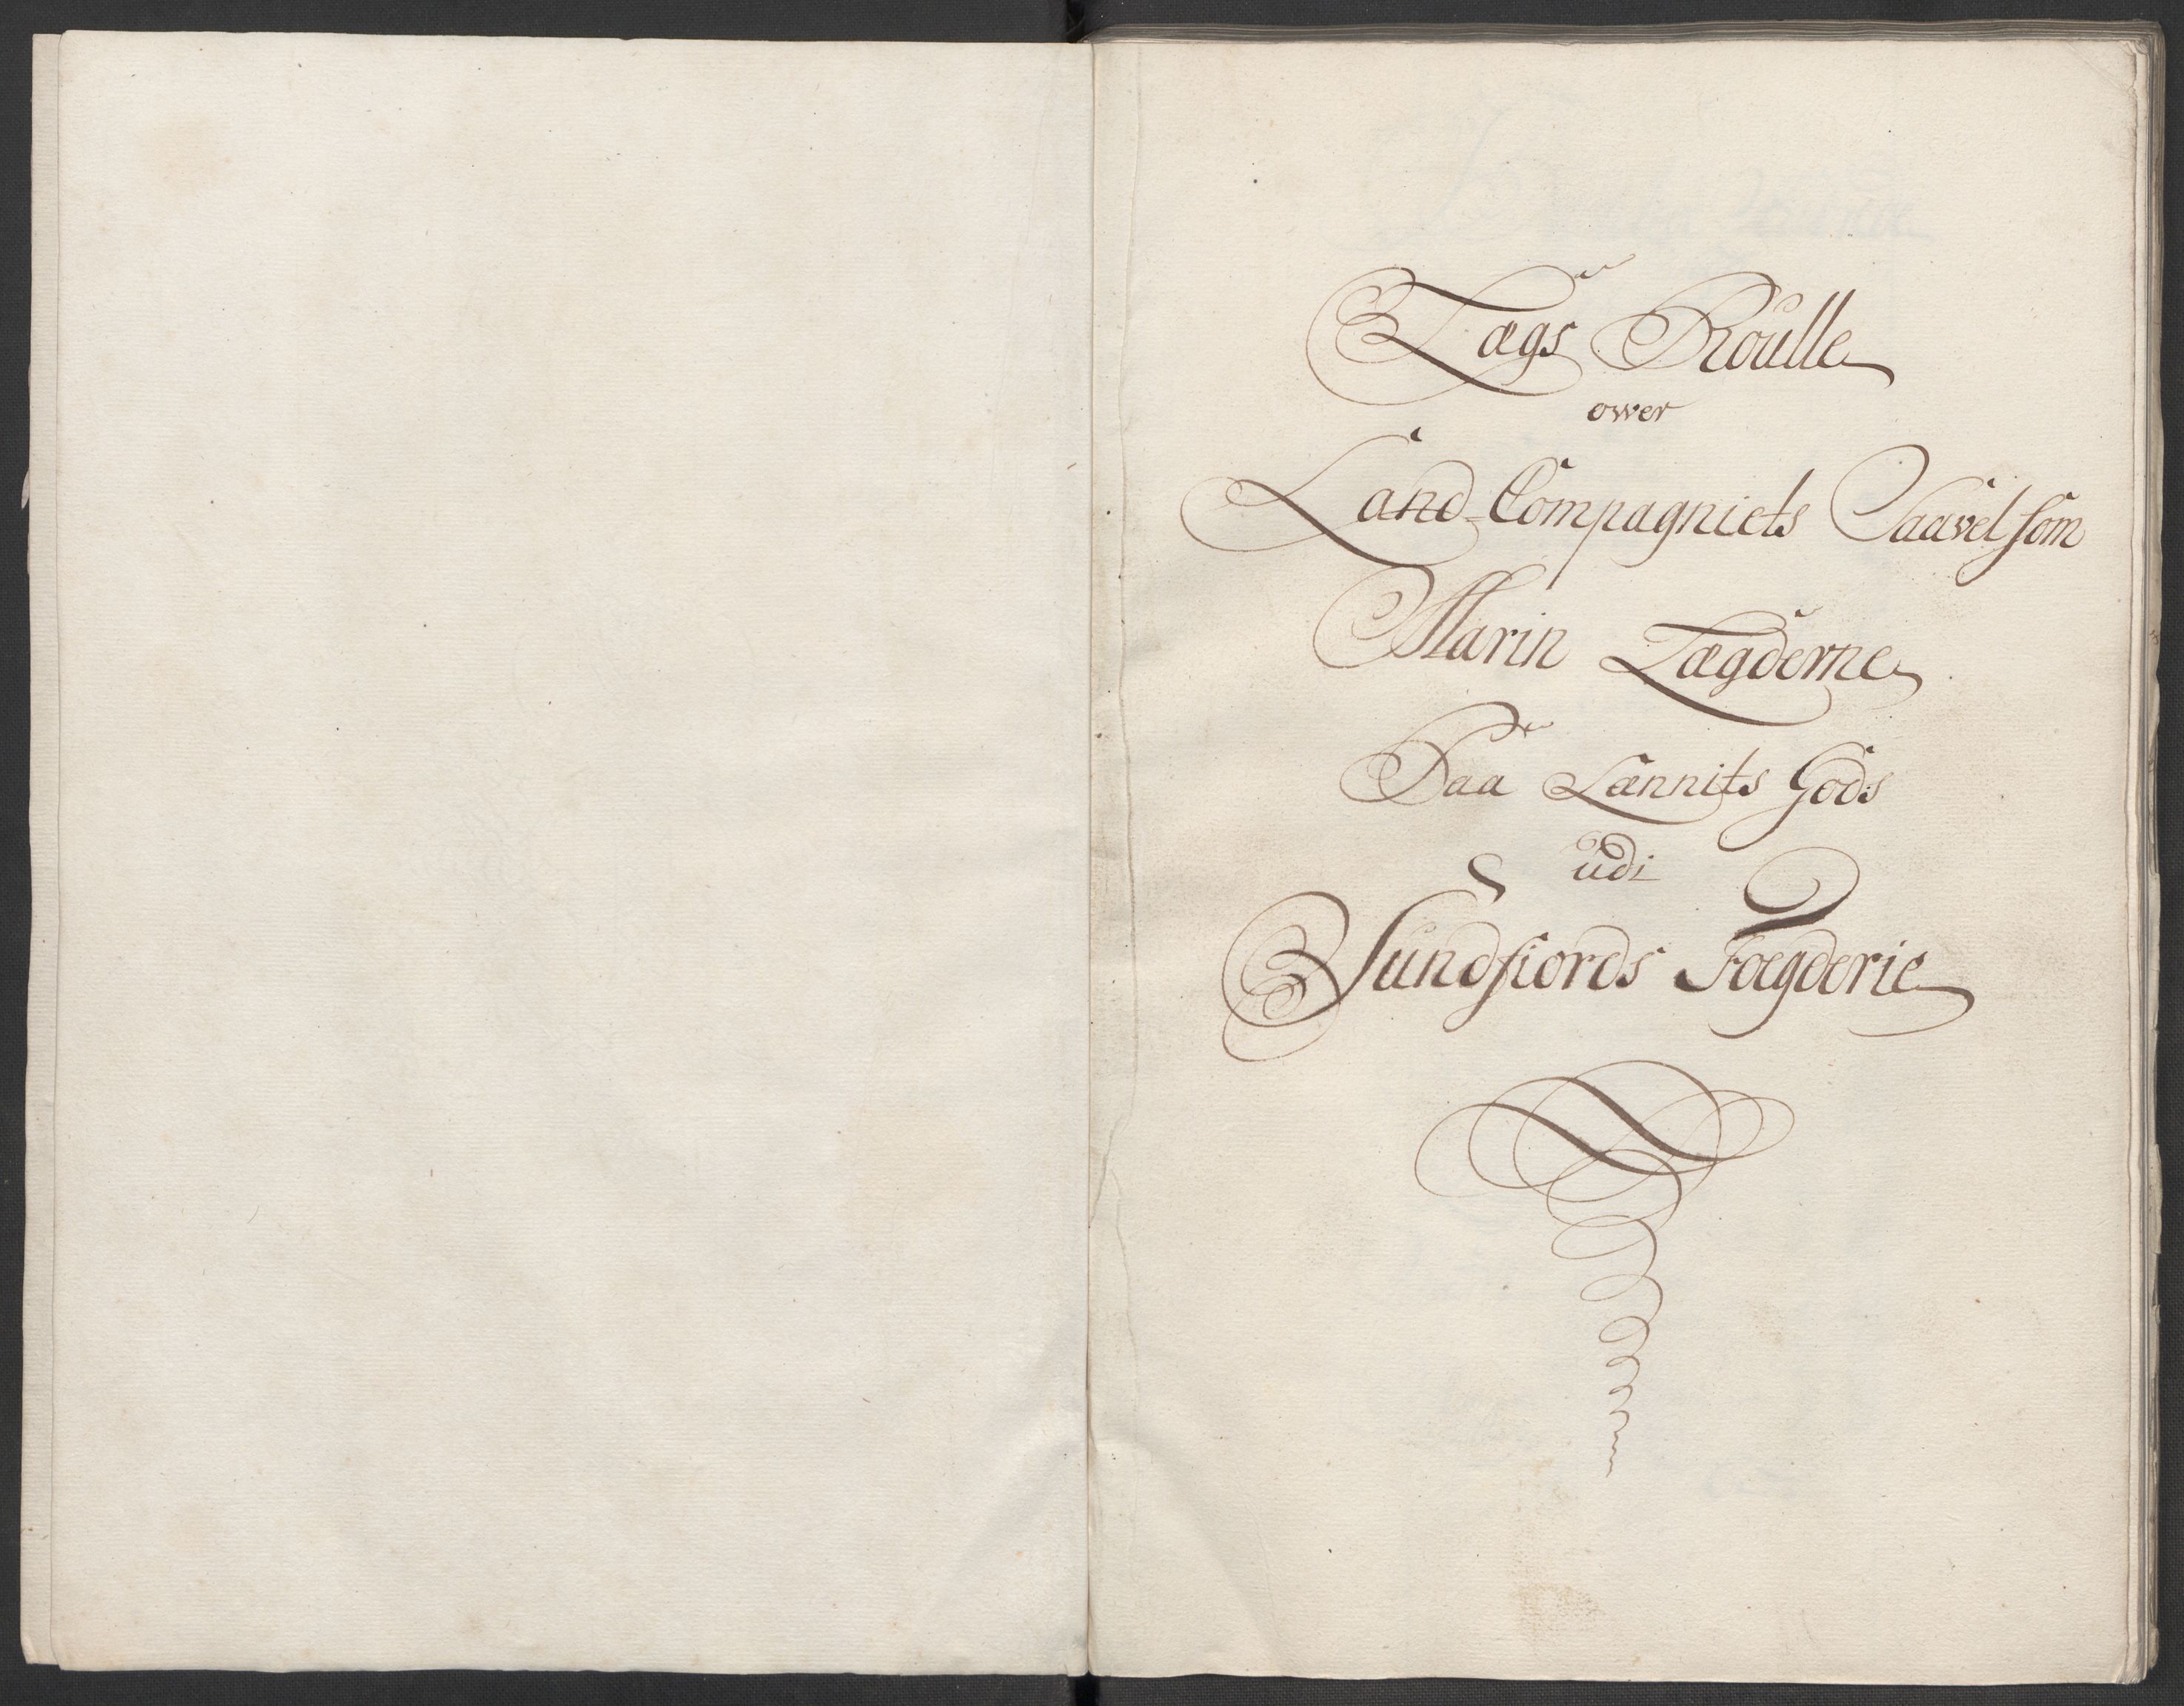 Lægs Roulle
ower
Land-Compagniets Saavel som
Marin Lægderne
Paa Lænnits Gods
udi
Sundfiords Fogderie